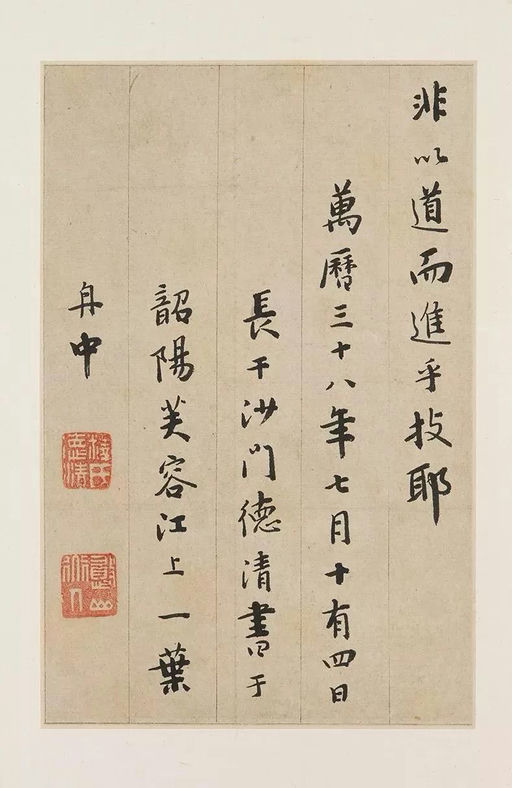 非以道而進乎技耶
萬曆三十八年七月十有四日
長干沙門德清書于
韶陽芙容江上一葉
舟中
釋氏德清
憨山衲子